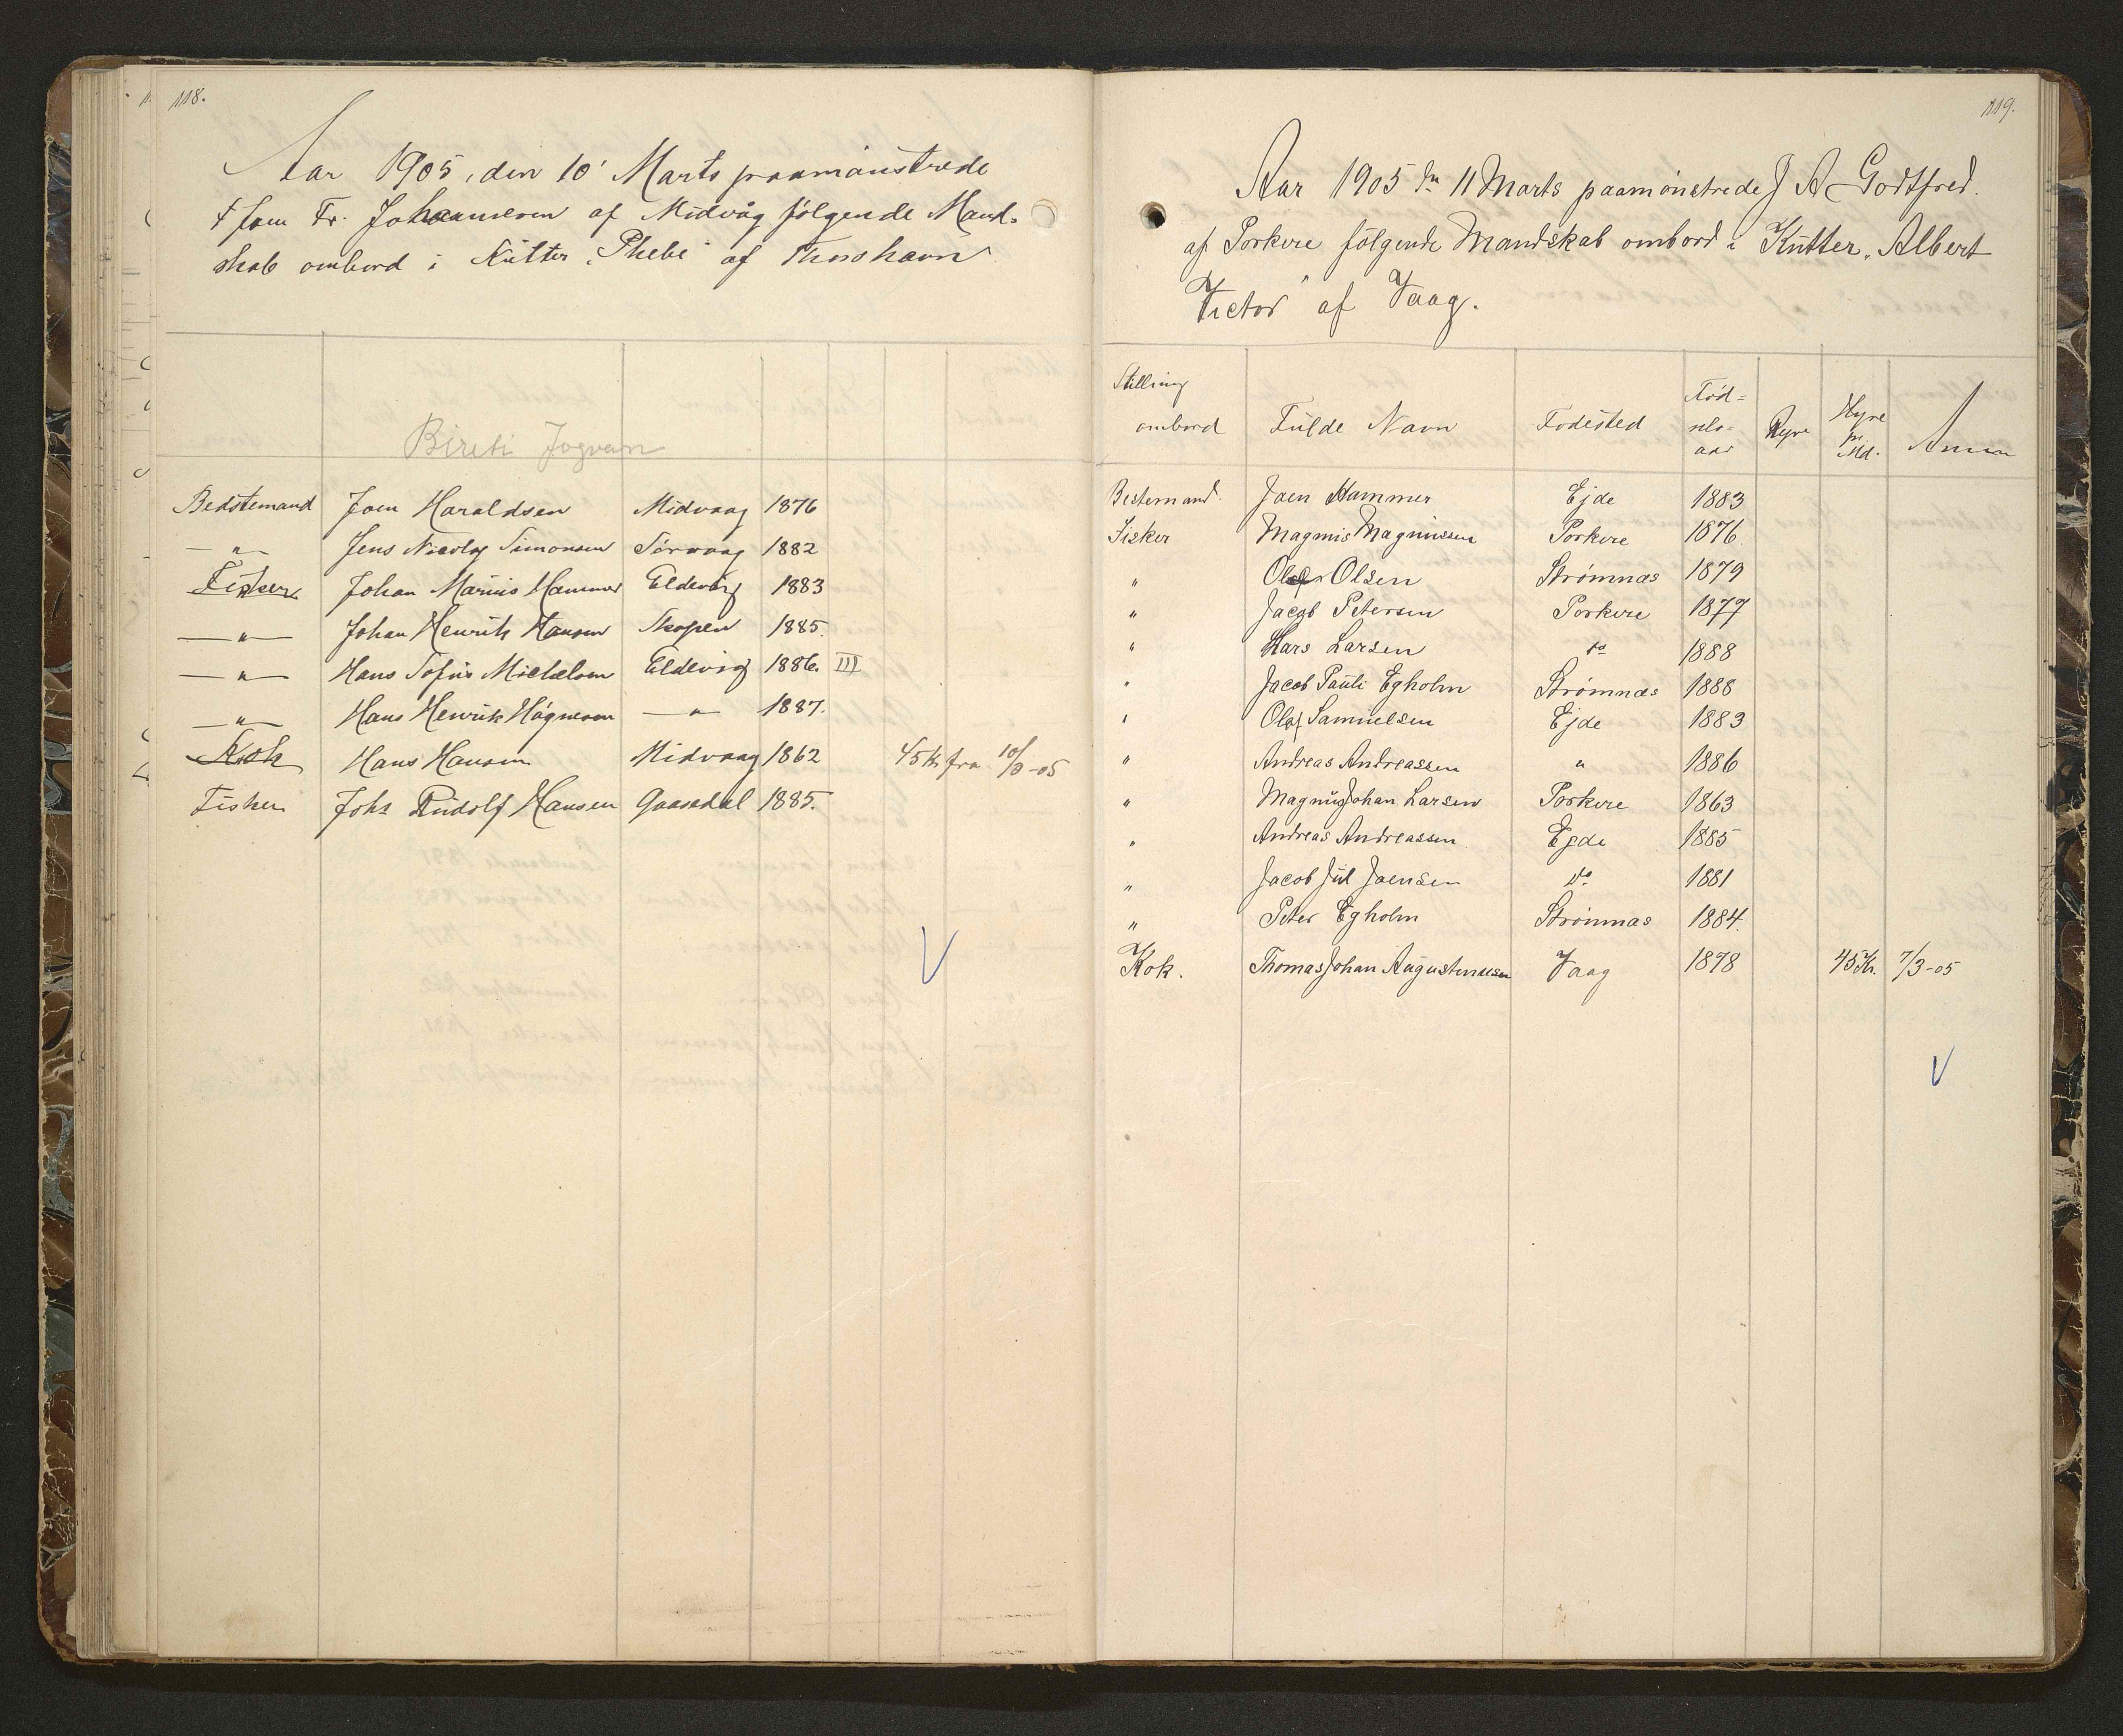 118.
Aar 1905, den 10' Marts paamönstrede
Fr. Johannesen af Midvåg følgende Mand-
skab ombord i Kutter "Phebe" af Thorshavn
Bireti Jogvan
Bedstemand Joen Haraldsen Midvaag 1876
—"— Jens Nicolaj Simonsen Sørvaag 1882
Fisker Johan Marius Hammer Eldevig 1883
—"— Johan Henrik Hansen Skopen 1885.
—"— Hans Sofus Michelsen Eldevig 1886. III
—"— Hans Henrik Høgnesen —"— 1887.
Kok Hans Hansen Midvaag 1862 45 Kr fra 10/3-05
Fisker Johs Rudolf Hansen Gaasedal 1885.
119.
Aar 1905 dn 11 Marts paamønstrede J A Godtfred.
af Porkere følgende Mandskab ombord i Kutter "Albert
Victor" af Vaag.
Stilling ombord Fulde Navn Fodested Fød=sels-aar Hyre Hyre pr. Md. Anm
Bestemand. Joen Hammer Ejde 1883
Fisker Magnus Magnussen Porkere 1876.
" Olaf Olsen Strømnæs 1879
" Jacob Petersen Porkere 1877
" Hars Larsen do 1888
" Jacob Pauli Egholm Strømnæs 1888
" Olaf Samuelsen Ejde 1883
" Andreas Andreassen " 1886
" Magnus Johan Larsen Porkere 1863
" Andreas Andreassen Egde 1885
" Jacob Jul Joensen do. 1881
" Peter Egholm Strømnas 1884.
Kok. Thomas Johan Augustinusen Vaag 1878 45 Kr. 7/3-05